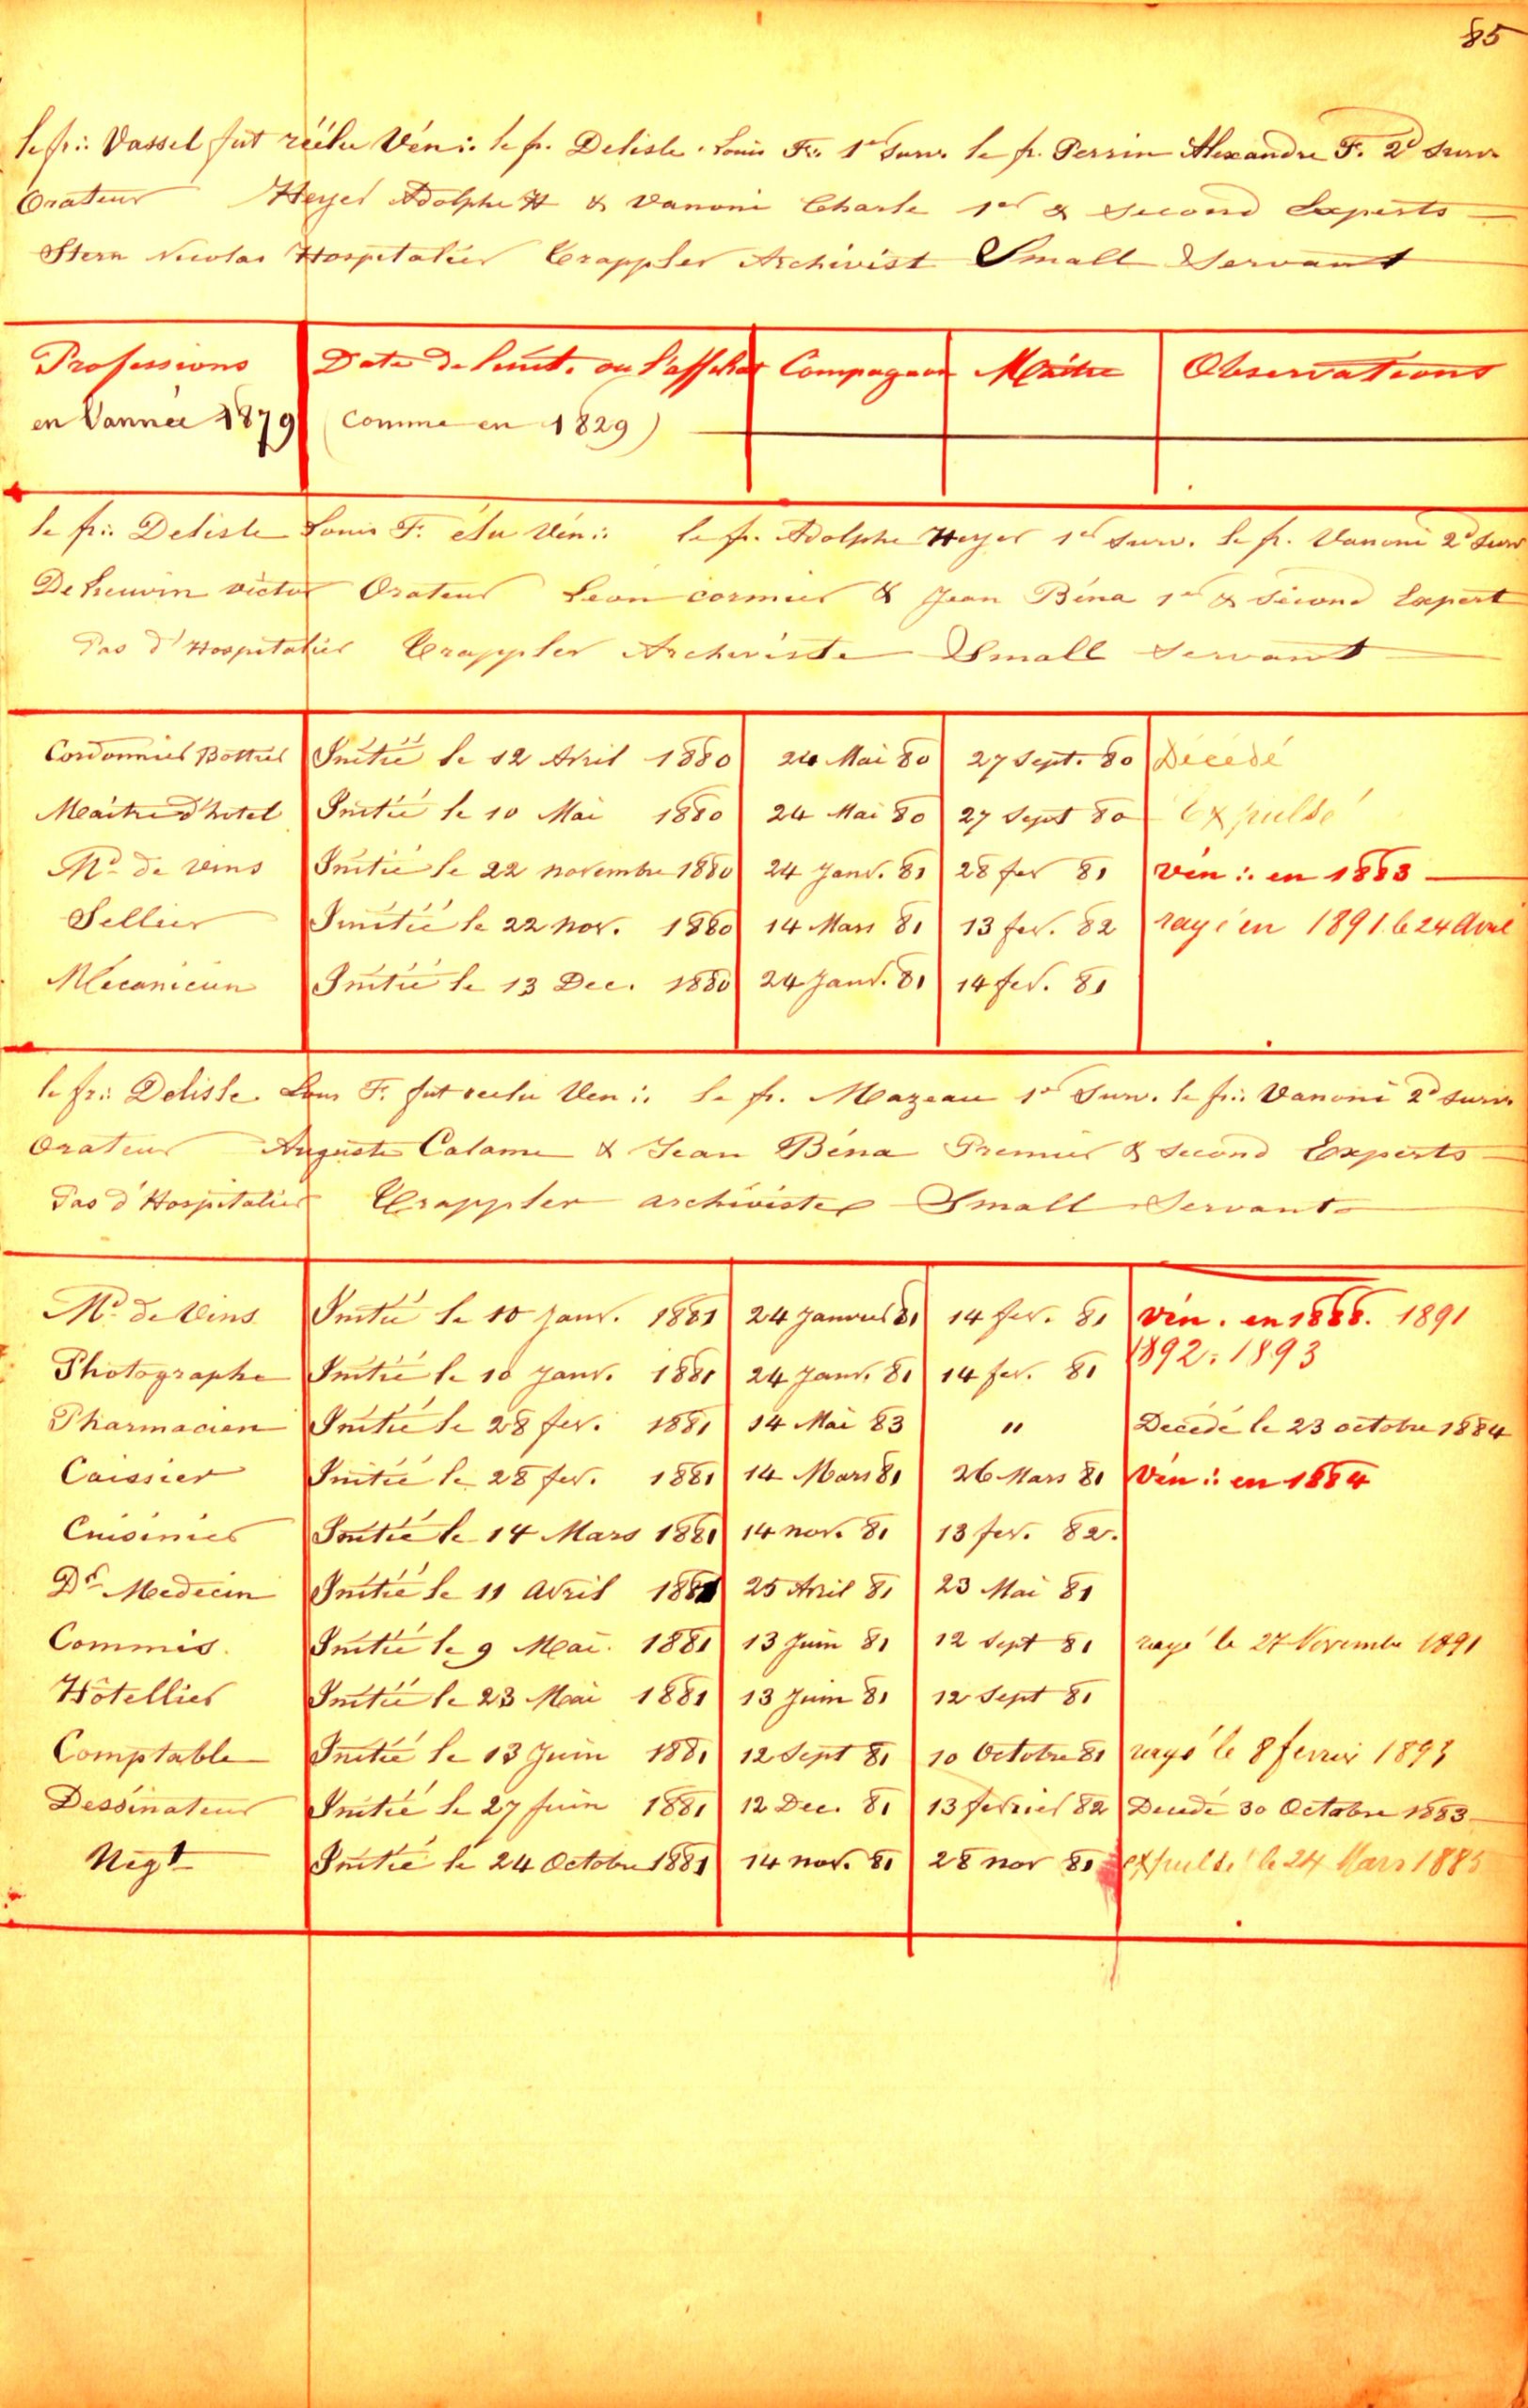 85
le fr∴ Vassel fut réélu Vén∴ le fr. Delisle Louis Fs. 1er Surv. le fr. Perrin Alexandre F. 2d Surv
Orateur Heyer Adolphe H & Vanoni Charle 1er & Second Experts
Stern Nicolas Hospitalier Crappler Archivist Small Servant
Professions Date de l'init. ou l'affiliat Compagnon Maitre Observations
en l'année 1879 (Comme en 1829)
le fr∴ Delisle Louis F. élu Vén∴ le fr. Adolphe Heyer 1er Surv. le fr. Vanoni 2d Surv
Victor Orateur Leon cormier & Jean Béna 1er & Second Expert
Pas d'Hospitalier Crappler Archiviste Small Servant
Cordonnier Bottier Initié le 12 Avril 1880 24 Mai 80 27 Sept. 80 Décédé
Maitre d'hotel Initié le 10 Mai 1880 24 Mai 80 27 Sept 80 Expulsé
Md. de vins Initié le 22 novembre 1880 24 Janv. 81 28 fev 81 vén∴ en 1883
Sellier Initié le 22 Nov. 1880 14 Mars 81 13 fev. 82 rayé en 1891 le 24 Avril
Mécanicien Initié le 13 Dec. 1880 24 Janv. 81 14 fev. 81
le fr∴ Delisle Louis F. fut reelu Ven∴ le fr. Mazeau 1er Surv. le fr∴ Vanoni 2d Surv
Orateur Auguste Calame & Jean Béna Premier & Second Experts
Pas d'Hospitalier Crappler archiviste Small Servant
Md. de Vins Initié le 10 Janv. 1881 24 Janvier 81 14 fev. 81 vén. en 1888. 1891
1892. 1893
Photographe Initié le 10 Janv. 1881 24 Janv. 81 14 fev. 81
Pharmacien Initié le 28 fev. 1881 14 Mai 83 " Décédé le 23 octobre 1884
Caissier Initié le 28 fev. 1881 14 Mars 81 26 Mars 81 Vén∴ en 1884
Cuisinier Initié le 14 Mars 1881 14 nov. 81 13 fev. 82.
Dr. Medecin Initié le 11 Avril 1881 25 Avril 81 23 Mai 81
Commis. Initié le 9 Mai. 1881 13 Juin 81 12 Sept 81 rayé le 27 Novembre 1891
Hotellier Initié le 23 Mai 1881 13 Juin 81 12 Sept 81
Comptable Initié le 13 Juin 1881 12 Sept 81 10 Octobre 81 rayé le 8 fevrier 1893
Dessinateur Initié le 27 Juin 1881 12 Dec. 81 13 fevrier 82 Décédé 30 Octobre 1883
Negt Initié le 24 Octobre 1881 14 nov. 81 28 nov 81 expulsé le 24 Mars 1885